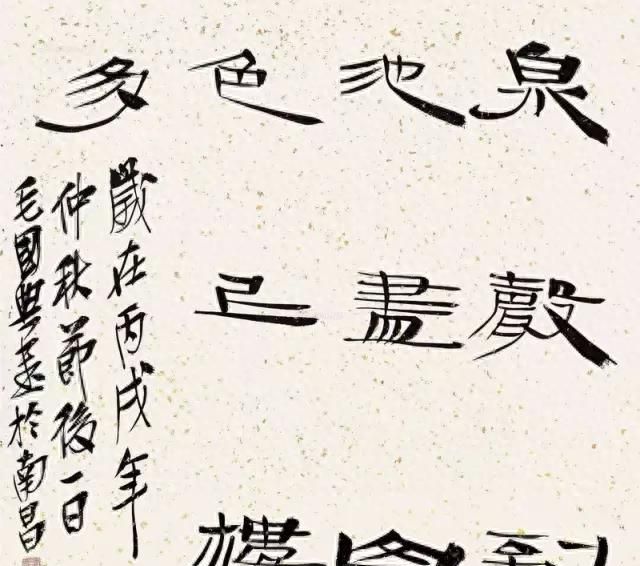 泉聲到
池盡
色上樓
多
歲在丙戌年
仲秋節後一日
毛國典書於南昌